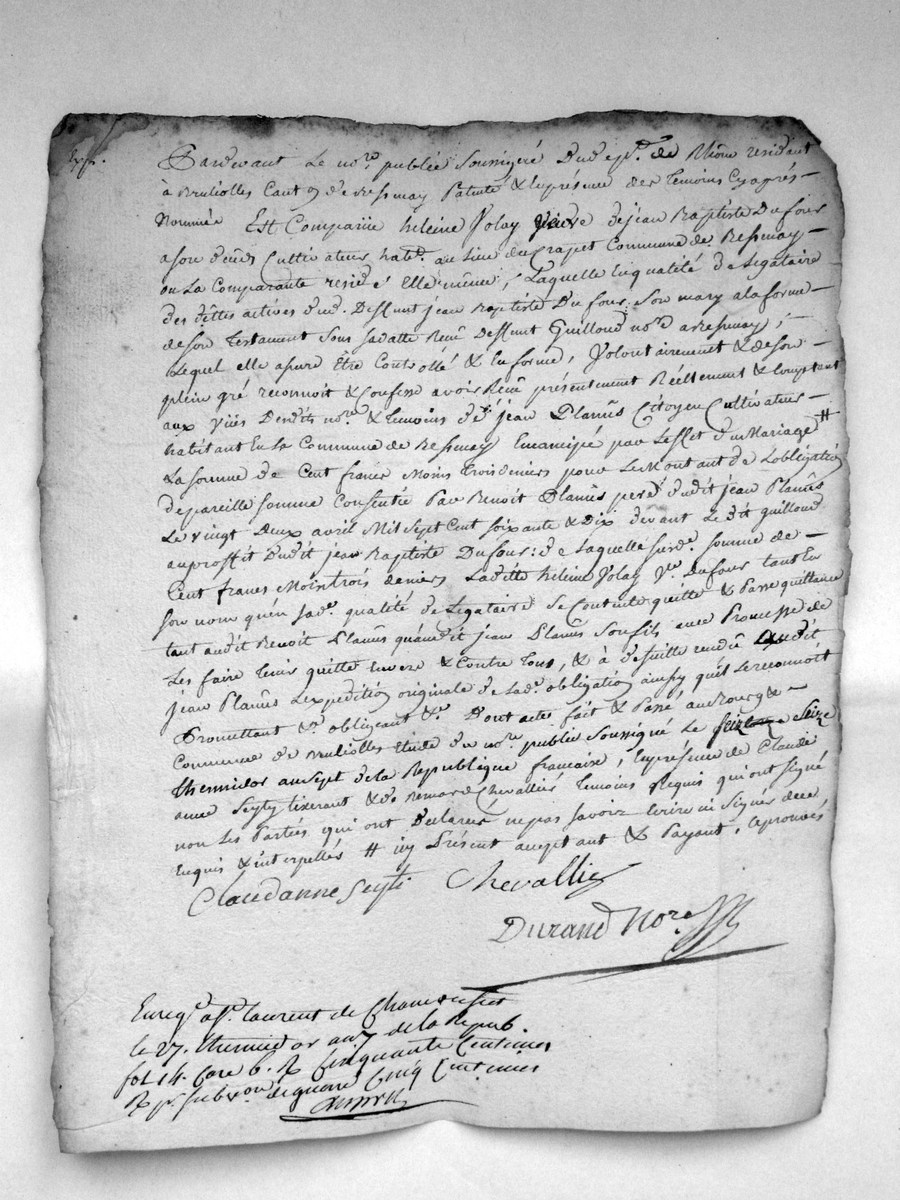 Exp.
Pardevant Le no.re public Soussigné Du dep.t de Rhône resident
à Brulioles Canton de Bessenay Patenté & En présence des temoins Cy après
Nommés Est Comparüe heleine Volay Veuve de jean Baptiste Dufour
a son décès Cultivateur habt. au Lieu du Crapet Commune de Bessenay
ou La Comparante reside Elle même, Laquelle En qualité de Légataire
des dettes actives dud. Deffunt jean Baptiste Dufour Son mary a la forme
de son Testament Sous Sa datte Reçû Deffunt Guilloud no.re a Bessenay,
Lequel elle assure Être Controllé & En forme, Volontairement & de son
plein gré reconnoit & Confesse avoir Reçû présentement Réellement & Comptant
aux Vües Desdits no.re & temoins de jean Planûs Citoyen Cultivateur
habitant En La Commune de Bessenay Emancipé par L'effet du Mariage #
La somme de Cent francs Moins trois deniers pour Le Montant de Lobligation
de pareille somme Consentie Par Benoit Planûs pere dudit jean Planûs
Le vingt Deux avril Mil Sept Cent soixante & Dix devant Le dit guilloud
au proffit Dudit jean Baptiste Dufour: de Laquelle susd.e somme de
Cent francs Moins trois deniers Laditte heleine Volay V.e Dufour tant En
Son nom qu'en sad.e qualité de Légataire Se Contente quitte & Passe quittance
tant audit Benoit Planûs qu'audit jean Planûs Son fils avec Promesse de
Les faire tenir quitte Envers & Contre tous, & à De suitte rendû audit
jean Planûs L'expedition originale de Lad.e obligation ainsy qu'il Le reconnoit
Promettant &.a obligeant &.a Dont acte fait & Passé au Bourg &
Commune de Brulioles Etude du no.re public Soussigné Le Seize
thermidor an Sept de La Republique francaise, En présence de Claude
anne Seyty tixerant & de Chevallier temoins Requis qui ont Signé
non Les Parties qui ont Declaréz ne pas Savoir Ecrire ni Signer de ce
Enquis & interpellés # icy Présent acceptant & Payant, approuvés
Claudanne Seyti Chevallier
Durand Nore
Enreg.é a S.t laurent de Chamousset
le 27. thermidor an 7 de la Repub.
fol 14. Case 6. R Cinquante Centimes
R p.r subv.on de guerre Cinq Centimes